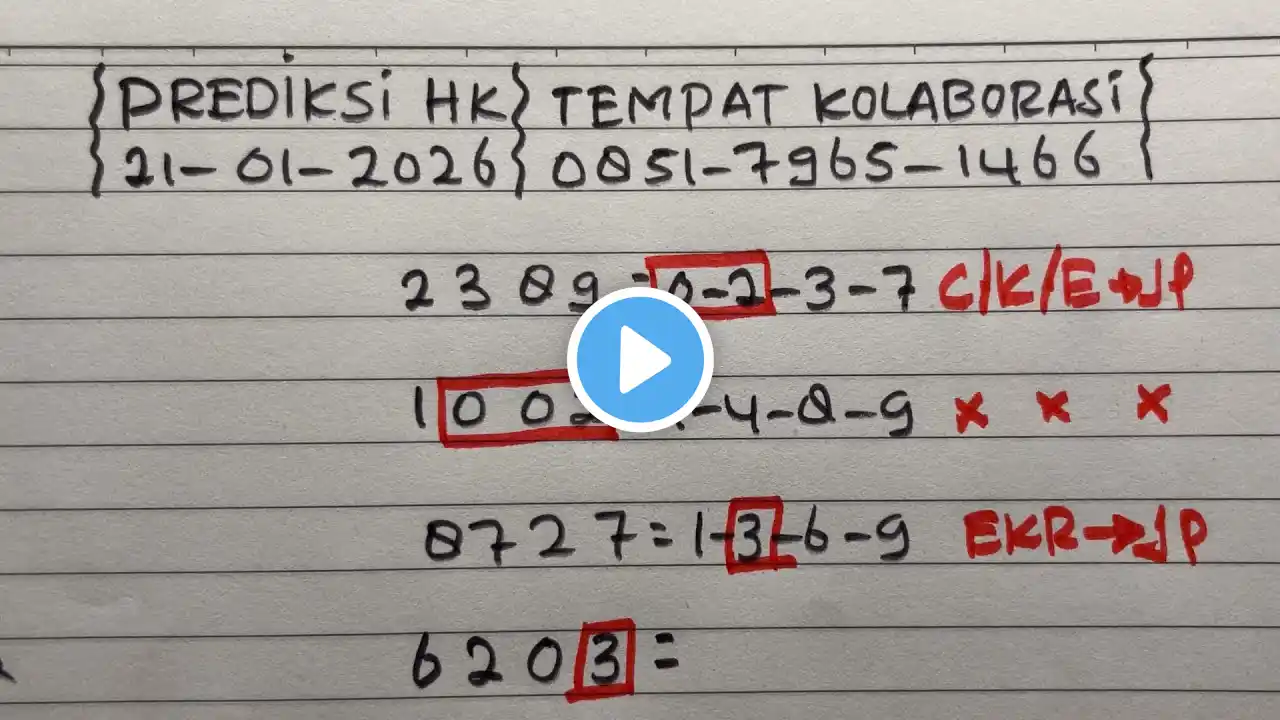 PREDIKSI HK TEMPAT KOLABORASI
21-01-2026 0851-7965-1466
2389=0-2-3-7 C/K/E→JP
1002 -4-8-9 × × ×
8727=1-3-6-9 EKR→JP
6203=